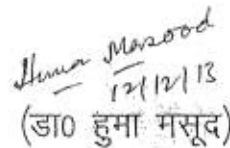 Huma Masood
12/12/13
(डा० हुमा मसूद)